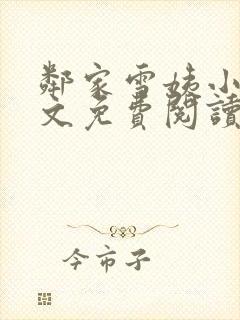 鄰家雪姨小
文免費閱讀
今市子